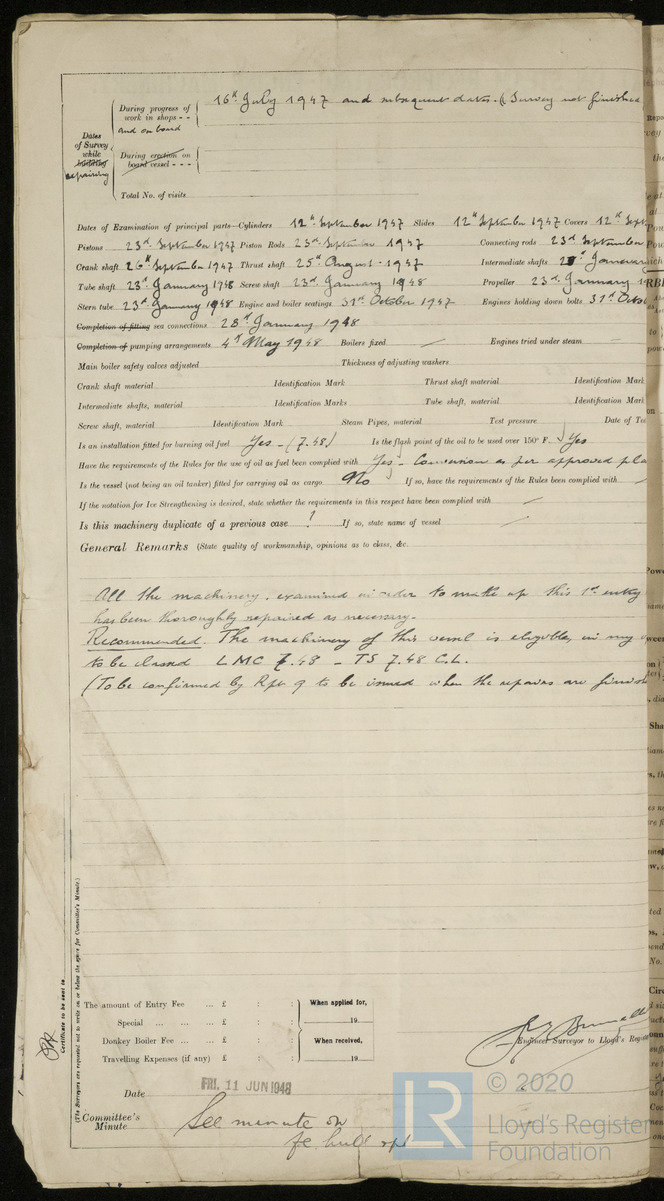 16th July 1947 and subsequent dates. (Survey not finished
During progress of
work in shops - -
and on board
Dates
of Survey
while
building
repairing
During erection on
board vessel - - -
Total No. of visits
Dates of Examination of principal parts—Cylinders 12th September 1947 Slides 12th September 1947 Covers 12th Sept
Pistons 23rd September 1947 Piston Rods 23rd September 1947 Connecting rods 23rd September
Crank shaft 26th September 1947 Thrust shaft 25th August - 1947 Intermediate shafts January
Tube shaft 23rd January 1948 Screw shaft 23rd January 1948 Propeller 23rd January 1
Stern tube 23rd January 1948 Engine and boiler seatings 31st October 1947 Engines holding down bolts 31st Octo
Completion of fitting sea connections 28th January 1948
Completion of pumping arrangements 4th May 1948 Boilers fixed — Engines tried under steam —
Main boiler safety valves adjusted Thickness of adjusting washers
Crank shaft material Identification Mark Thrust shaft material Identification Mark
Intermediate shafts, material Identification Marks Tube shaft, material Identification Mark
Screw shaft, material Identification Mark Steam Pipes, material Test pressure Date of Tes
Is an installation fitted for burning oil fuel Yes - (7.48) Is the flash point of the oil to be used over 150° F. Yes
Have the requirements of the Rules for the use of oil as fuel been complied with Yes - Conversion as per approved pla
Is the vessel (not being an oil tanker) fitted for carrying oil as cargo No If so, have the requirements of the Rules been complied with —
If the notation for Ice Strengthening is desired, state whether the requirements in this respect have been complied with —
Is this machinery duplicate of a previous case ? If so, state name of vessel —
General Remarks (State quality of workmanship, opinions as to class, &c.
All the machinery, examined in order to make up this 1st entry
has been thoroughly repaired as necessary.
Recommended. The machinery of this vessel is eligible, in my
to be classed LMC 7.48 - TS 7.48 C.L.
(To be confirmed by Rpt 9 to be issued when the repairs are finish
(The Surveyors are requested not to write on or below the space for Committee's Minute.)
Certificate to be sent to
The amount of Entry Fee ... £ : : When applied for,
Special ... ... ... £ : : 19
Donkey Boiler Fee ... ... £ : : When received,
Travelling Expenses (if any) £ : : 19
Engineer Surveyor to Lloyd's Regis
Date FRI. 11 JUN 1948
Committee's
Minute
See minute on
fe hull rpt
LR
© 2020
Lloyd's Register
Foundation